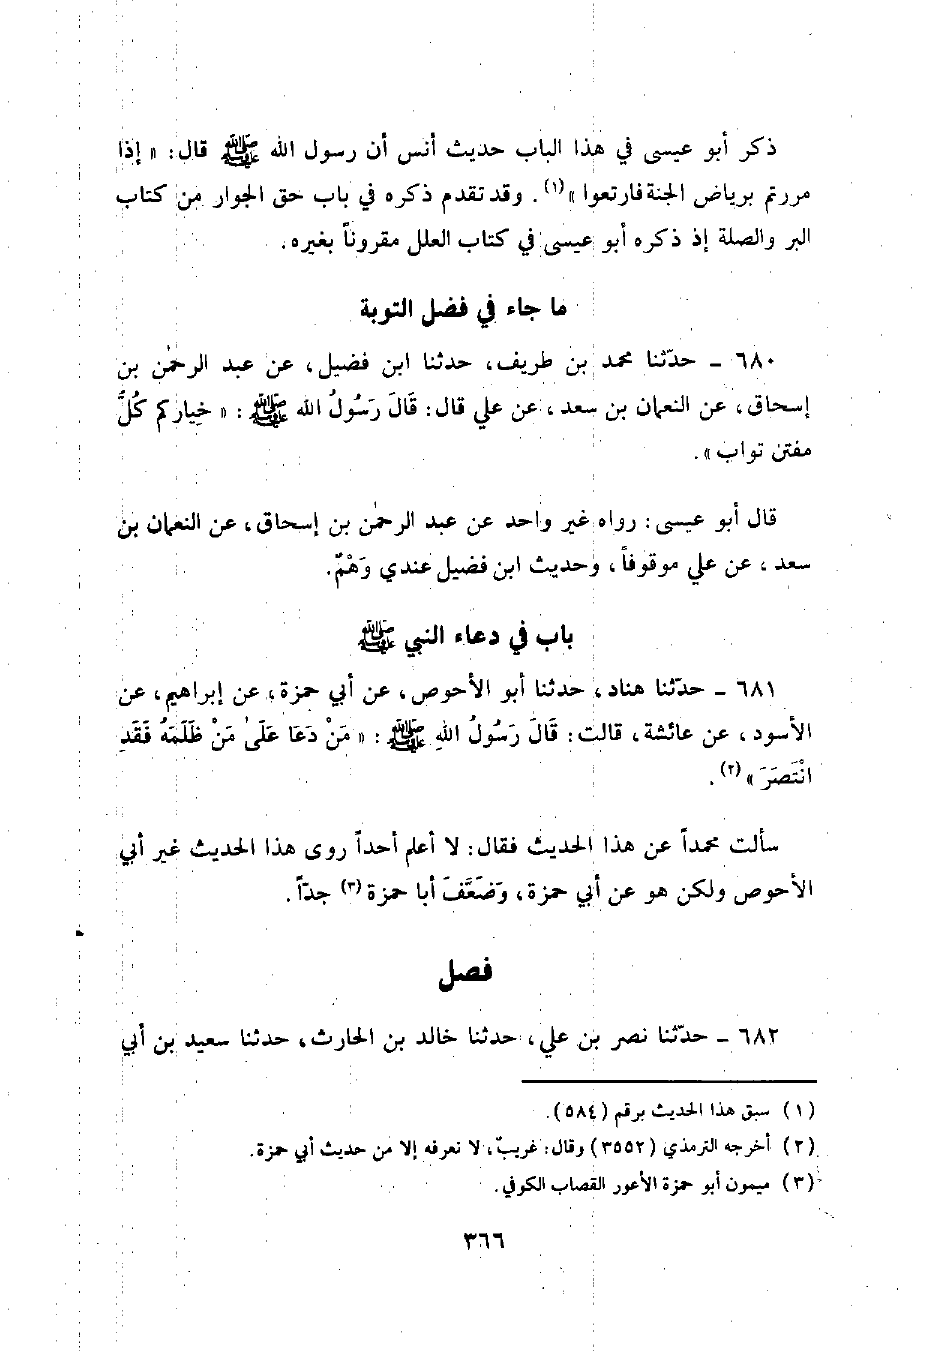 ذكر أبو عيسى في هذا الباب حديث أنس أن رسول الله ﷺ قال: « إذا
مررتم برياض الجنة فارتعوا »(١). وقد تقدم ذكره في باب حق الجوار من كتاب
البر والصلة إذ ذكره أبو عيسى في كتاب العلل مقروناً بغيره.
ما جاء في فضل التوبة
٦٨٠ ـ حدّثنا محمد بن طريف، حدثنا ابن فضيل، عن عبد الرحمٰن بن
إسحاق، عن النعمان بن سعد، عن علي قال: قَالَ رَسُولُ الله ﷺ: « خِياركم كُلُّ
مفتن تواب ».
قال أبو عيسى: رواه غير واحد عن عبد الرحمٰن بن إسحاق، عن النعمان بن
سعد، عن علي موقوفاً، وحديث ابن فضيل عندي وَهْمٌ.
باب في دعاء النبي ﷺ
٦٨١ ـ حدّثنا هناد، حدثنا أبو الأحوص، عن أبي حمزة، عن إبراهيم، عن
الأسود، عن عائشة، قالت: قَالَ رَسُولُ اللهِ ﷺ: « مَنْ دَعَا عَلَىٰ مَنْ ظَلَمَهُ فَقَدِ
انْتَصَرَ »(٢).
سألت محمداً عن هذا الحديث فقال: لا أعلم أحداً روى هذا الحديث غير أبي
الأحوص ولكن هو عن أبي حمزة، وَضَعَّفَ أبا حمزة(٣) جدّاً.
فصل
٦٨٢ ـ حدّثنا نصر بن علي، حدثنا خالد بن الحارث، حدثنا سعيد بن أبي
(١) سبق هذا الحديث برقم (٥٨٤).
(٢) أخرجه الترمذي (٣٥٥٢) وقال: غريبٌ، لا نعرفه إلا من حديث أبي حمزة.
(٣) ميمون أبو حمزة الأعور القصاب الكوفي.
٣٦٦